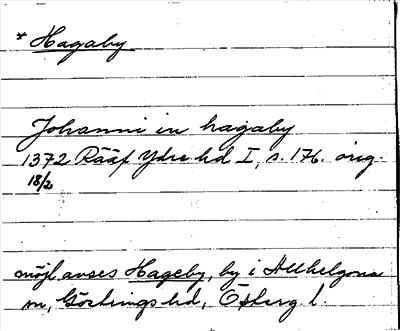 * Hagaby
Johanni in hagaby
1372 Rääf Ydre hd I, s. 176. orig.
18/2
möjl. avses Hageby, by i Allhelgona
sn, Göstrings hd, Östergl.